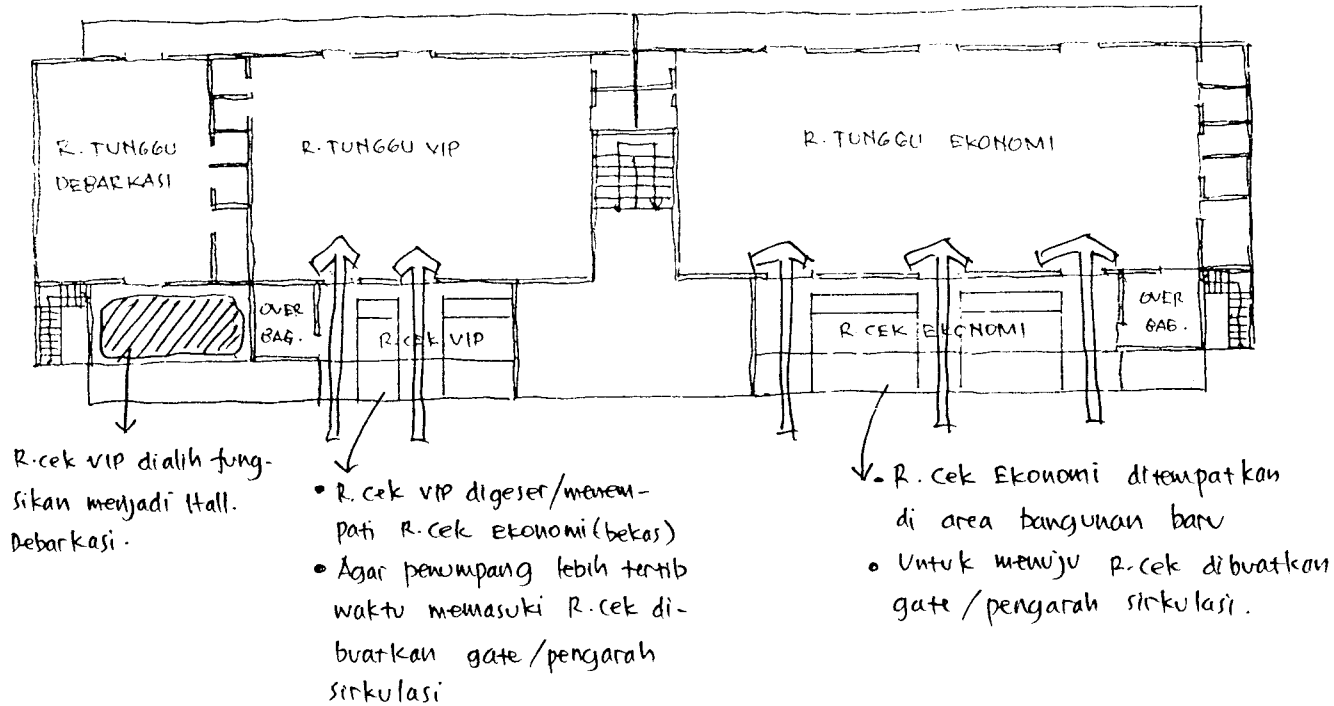 R. TUNGGU
DEBARKASI
R. TUNGGU VIP
R. TUNGGU EKONOMI
OVER
BAG.
R. CEK VIP
R. CEK EKONOMI
OVER
BAG.
R. cek VIP dialih fung-
sikan menjadi Hall.
Debarkasi.
• R. cek VIP digeser/menem-
pati R. cek Ekonomi (bekas)
• Agar penumpang lebih tertib
waktu memasuki R. cek di-
buatkan gate/pengarah
sirkulasi
• R. Cek Ekonomi ditempatkan
di area bangunan baru
• Untuk menuju R. cek dibuatkan
gate/pengarah sirkulasi.